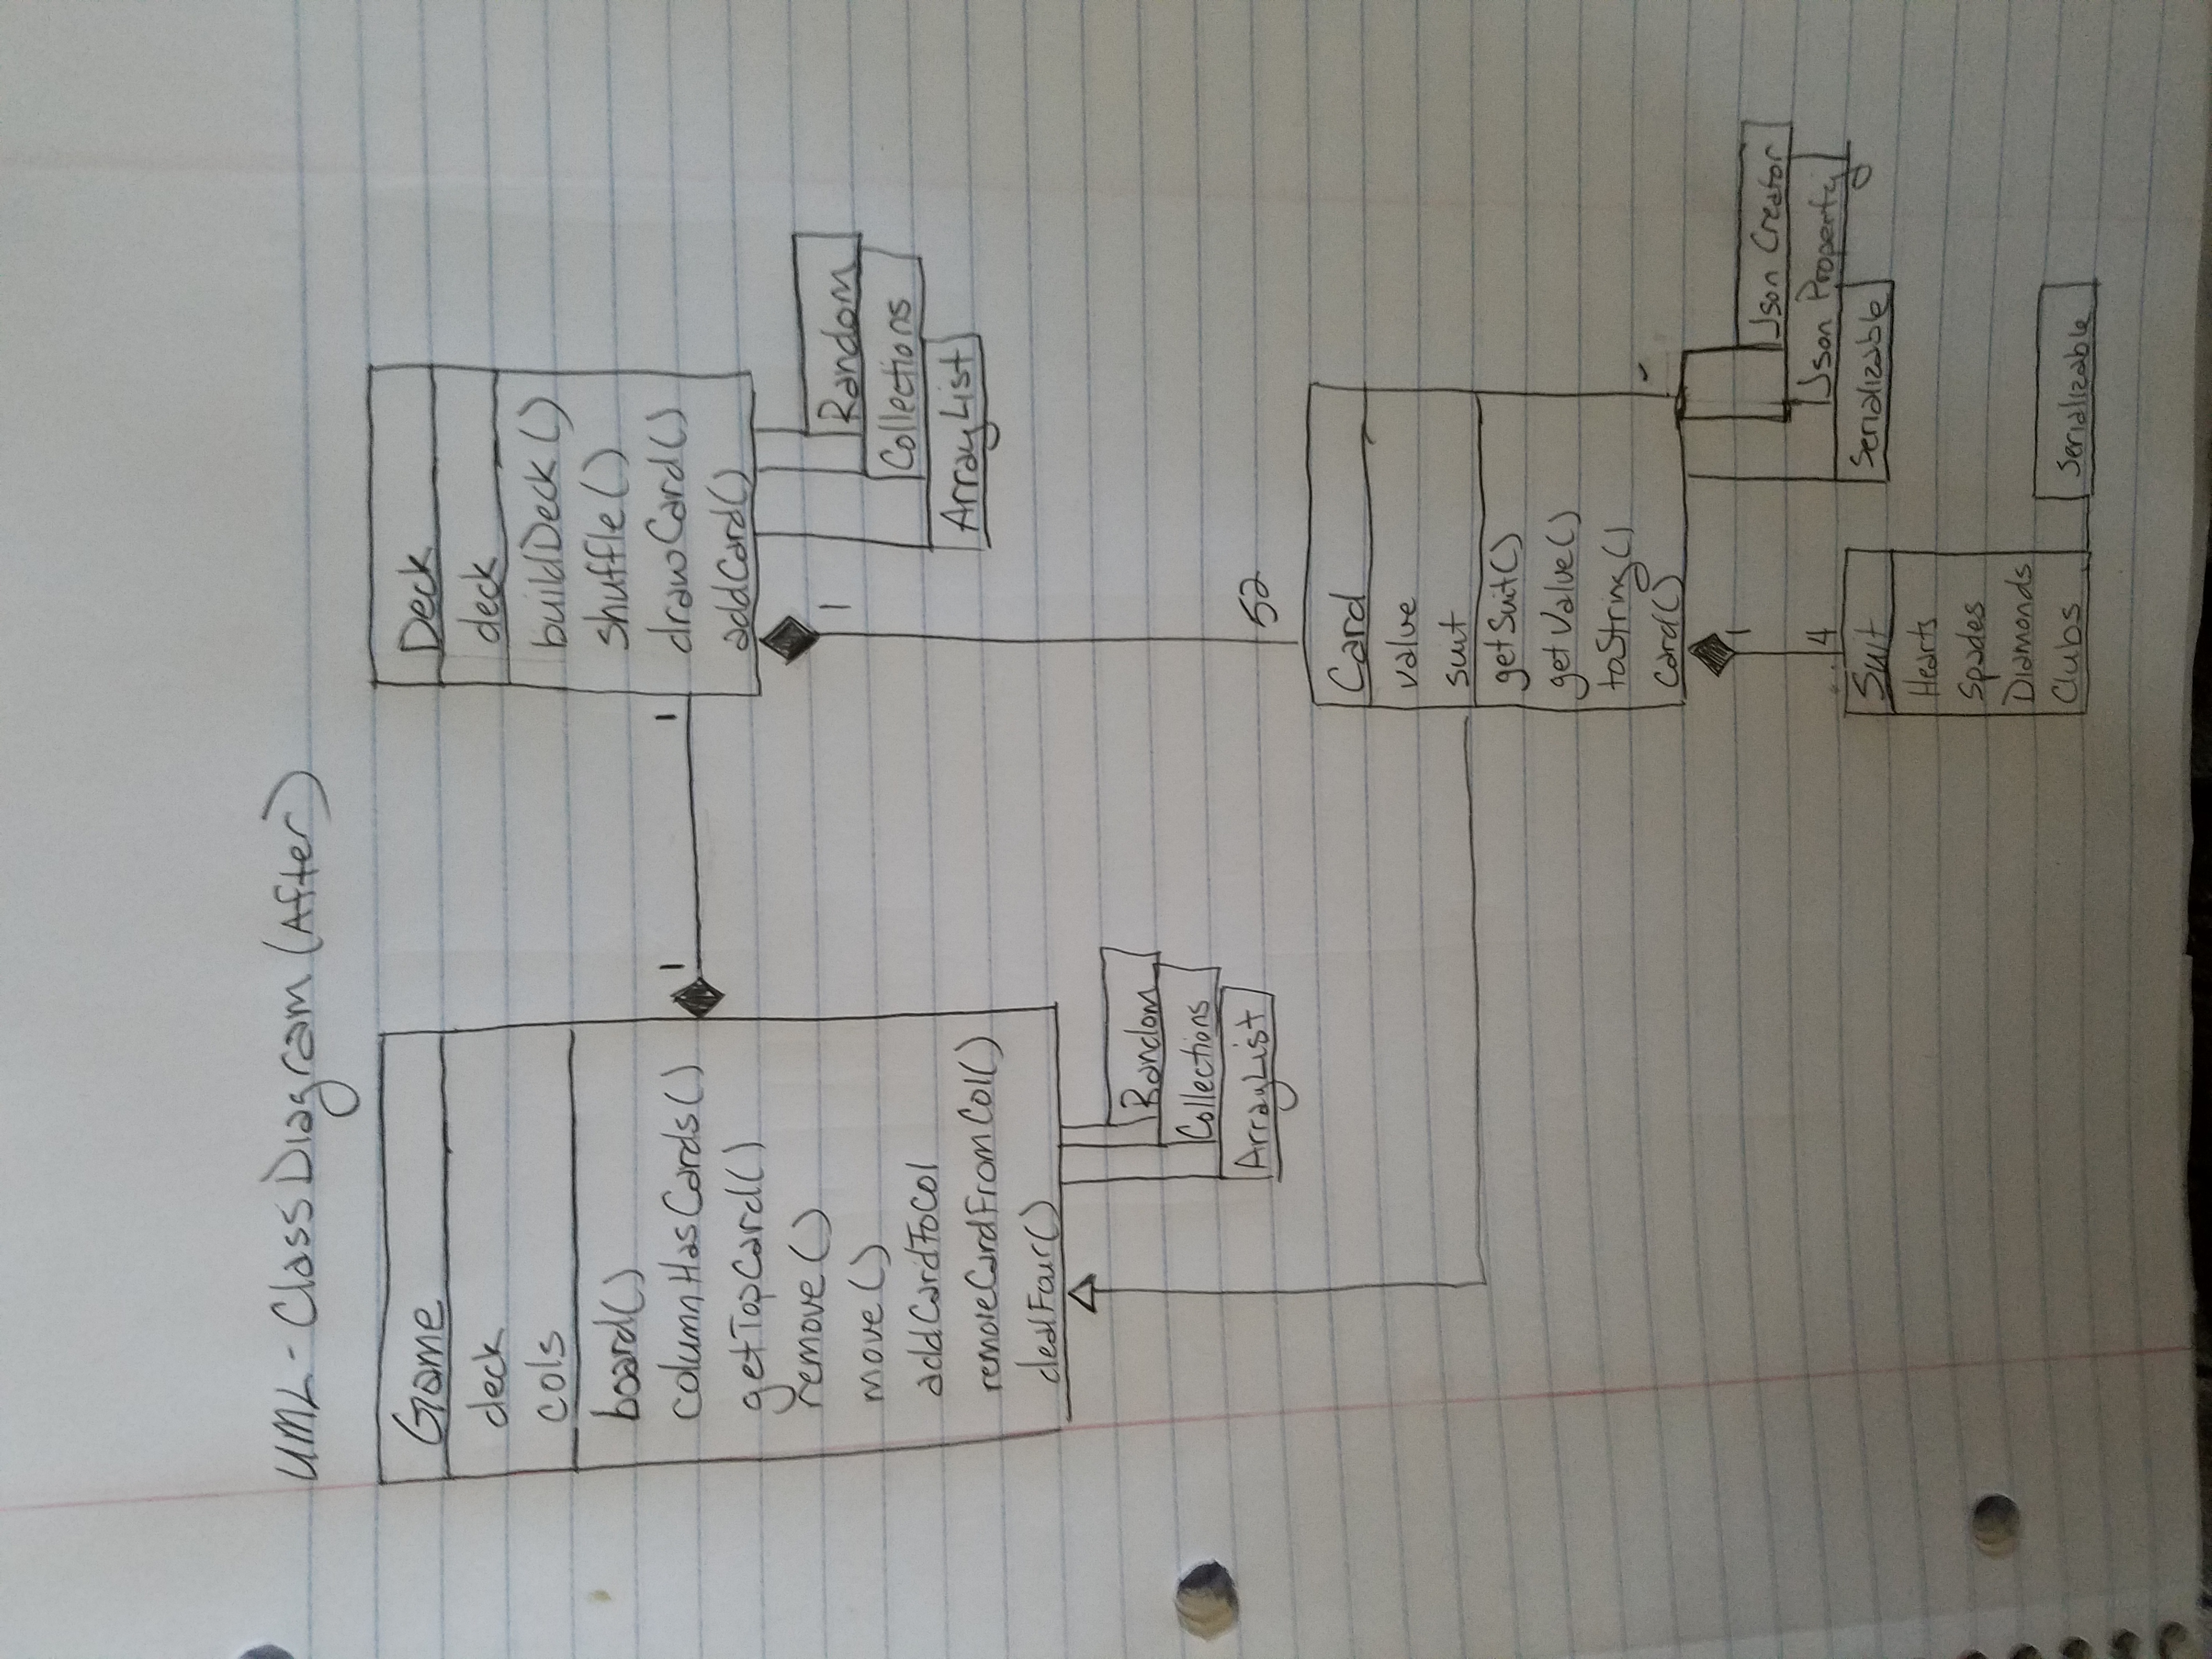 UML - Class Diagram (After)
Game
deck
cols
board()
columnHasCards()
getTopCard()
remove()
move()
addCardToCol
removeCardFromCol()
dealFour()
Random
Collections
ArrayList
1
1
Deck
deck
buildDeck()
shuffle()
drawCard()
addCard()
1
Random
Collections
ArrayList
52
Card
value
suit
getSuit()
getValue()
toString()
Card()
1
4
Json Creator
Json Property
Serializable
Suit
Hearts
Spades
Diamonds
Clubs
Serializable